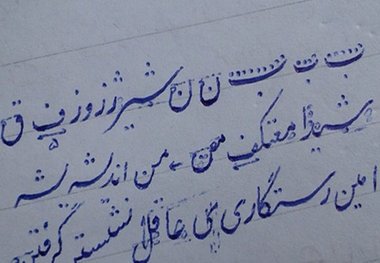 ب ب ب ن ن شیرژ زوزف ق
شیدا معتکف من من اندیشه یشه
امین رستگاری بی عاقل نشسته گرفتن